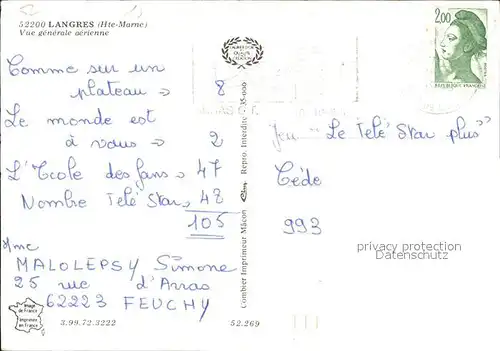 52200 LANGRES (Hte-Marne)
Vue générale aérienne
Comme sur un
plateau => 8
Le monde est
à vous => 2
L'Ecole des fans => 47
Nombre Télé Star => 48
105
Mme
MALOLEPSY Simone
25 rue d'Arras
62223 FEUCHY
Image
de France
Imprimée
en France
3.99.72.3222
52.269
Combier Imprimeur Mâcon
Repro. Interdite
2,00
REPUBLIQUE FRANCAISE
Jeu "Le Télé Star plus"
Cédex
993
privacy protection
watermark